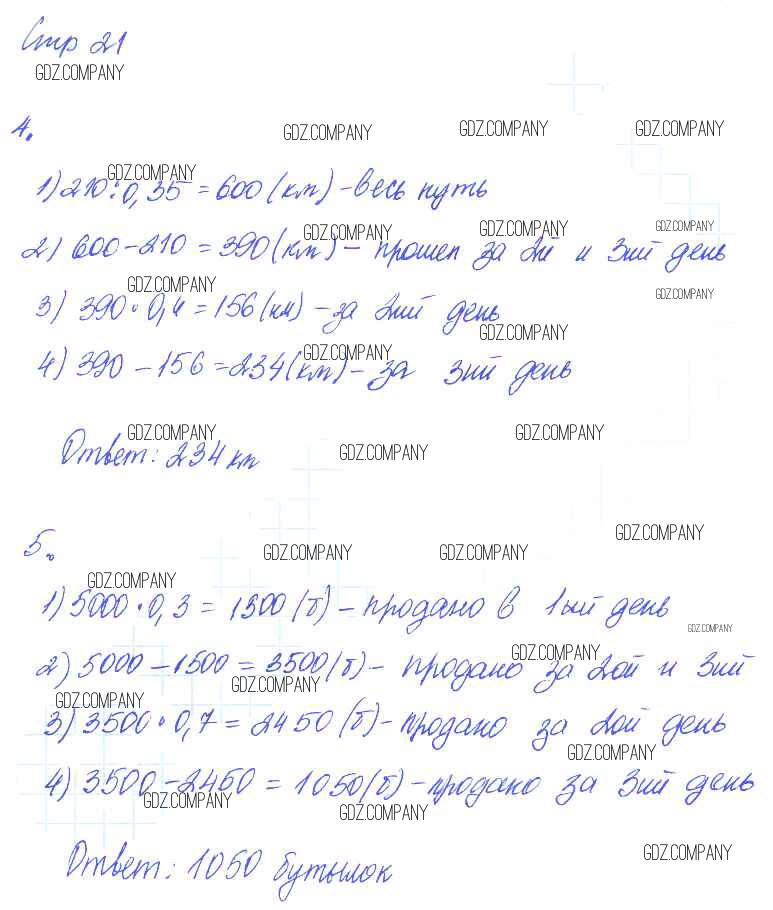 Стр 21
GDZ.COMPANY
4.
GDZ.COMPANY GDZ.COMPANY GDZ.COMPANY
GDZ.COMPANY
1) 210:0,35 = 600 (км) - весь путь
GDZ.COMPANY GDZ.COMPANY GDZ.COMPANY
2) 600-210 = 390 (км) - прошел за 2й и 3ий день
GDZ.COMPANY GDZ.COMPANY
3) 390·0,4 = 156 (км) - за 2ий день
GDZ.COMPANY
GDZ.COMPANY
4) 390-156 = 234 (км) - за 3ий день
GDZ.COMPANY GDZ.COMPANY
Ответ: 234 км
GDZ.COMPANY
5.
GDZ.COMPANY GDZ.COMPANY GDZ.COMPANY
GDZ.COMPANY
1) 5000·0,3 = 1500 (б) - продано в 1ый день
GDZ.COMPANY
GDZ.COMPANY
2) 5000-1500 = 3500 (б) - продано за 2ой и 3ий
GDZ.COMPANY
GDZ.COMPANY
3) 3500·0,7 = 2450 (б) - продано за 2ой день
GDZ.COMPANY
4) 3500-2450 = 1050 (б) - продано за 3ий день
GDZ.COMPANY GDZ.COMPANY
Ответ: 1050 бутылок
GDZ.COMPANY